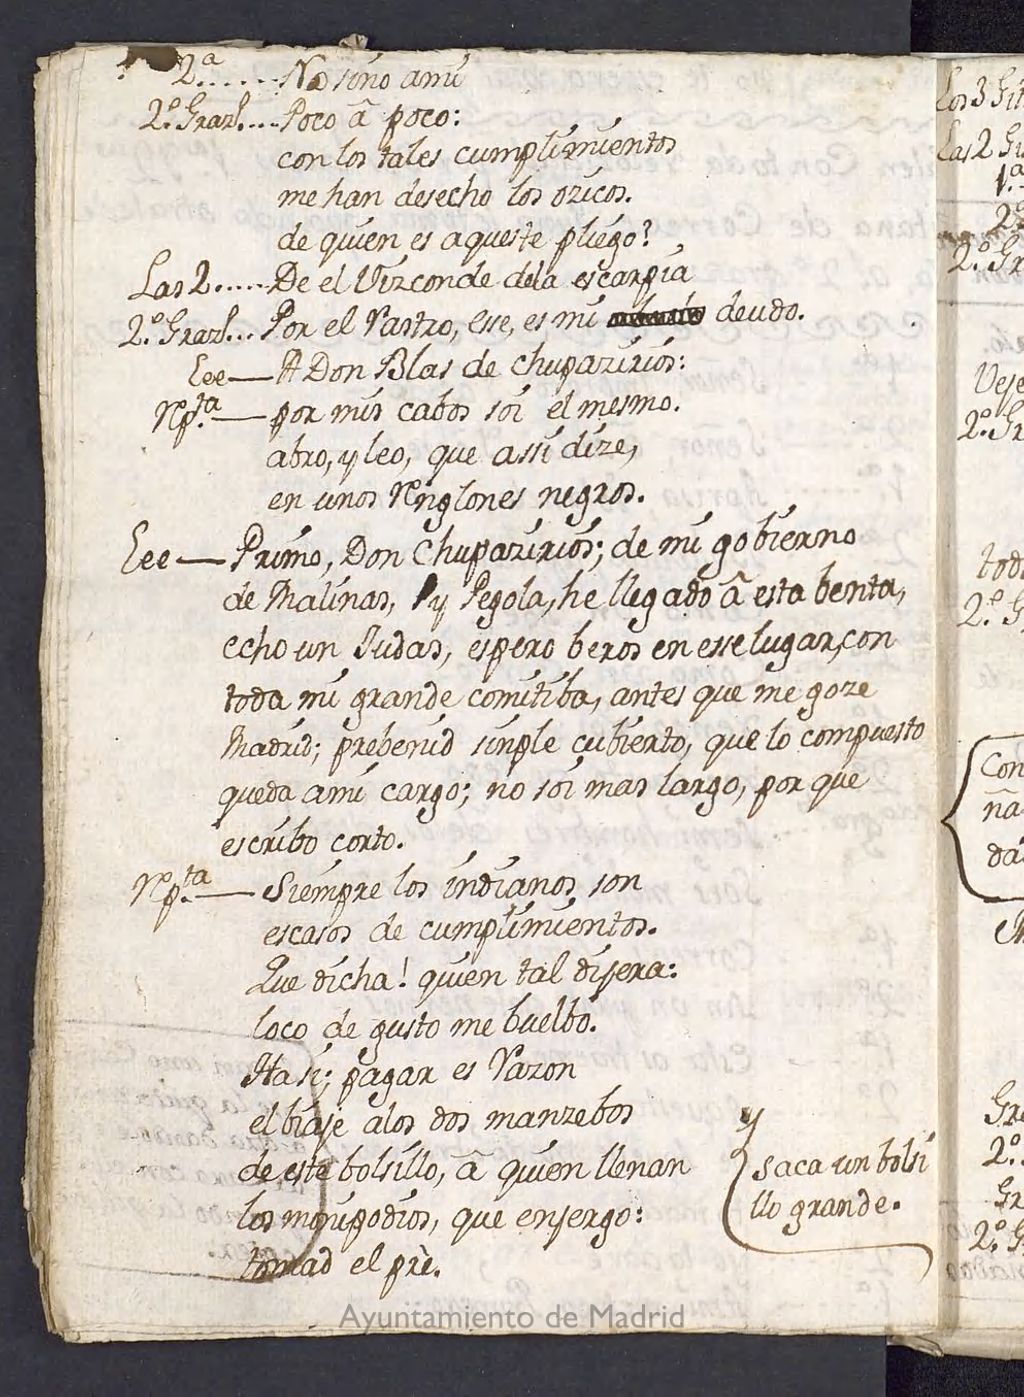 2.ª...... No sino a mi
2.º Graz.l... Poco â poco:
con los tales cumplimientos
me han desecho los ozicos.
de quien es aqueste pliego?
Las 2..... De el Vizconde dela escarpia
2.º Graz.l... Por el Rastro, esse, es mi deudo.
Lee— A Don Blas de chupazirios:
Rp.ta— por mis cabos soi el mesmo.
abro, y leo, que assi dize,
en unos renglones negros.
Lee— Primo, Don Chupazirios; de mi gobierno
de Malinas, y Pegola, he llegado â esta benta,
echo un Judas, espero beros en esse lugar, con
toda mi grande comitiba, antes que me goze
Madrid; prebenid simple cubierto, que lo compuesto
queda a mi cargo; no soi mas largo, por que
escribo corto.
Rp.ta— Siempre los indianos son
escasos de cumplimientos.
Que dicha! quien tal dijera:
loco de gusto me buelbo.
Ha si; pagar es Razon
el biaje alos dos manzebos
de este bolsillo, â quien llenan
los monipodios, que enjergo:
tomad el prè.
y
saca un bolsi
llo grande.
Los 3 Git
Las 2
1.ª
2.ª
2.º Gr
Veje
2.º Gr
toda
2.º G
Con
ña
da
Gra
2.º
Gr
2.º G
Ayuntamiento de Madrid